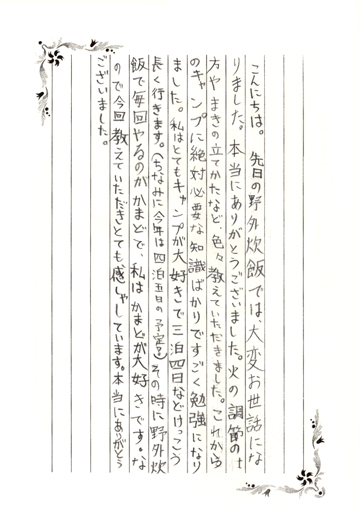 こんにちは。先日の野外炊飯では、大変お世話にな
りました。本当にありがとうございました。火の調節のし
方やまきの立てかたなど、色々教えていただきました。これから
のキャンプに絶対必要な知識ばかりですごく勉強になり
ました。私はとてもキャンプが大好きで三泊四日などけっこう
長く行きます。(ちなみに今年は四泊五日の予定?)その時に野外炊
飯で毎回やるのがかまどで、私はかまどが大好きです。な
ので今回教えていただきとても感しゃしています。本当にありがとう
ございました。